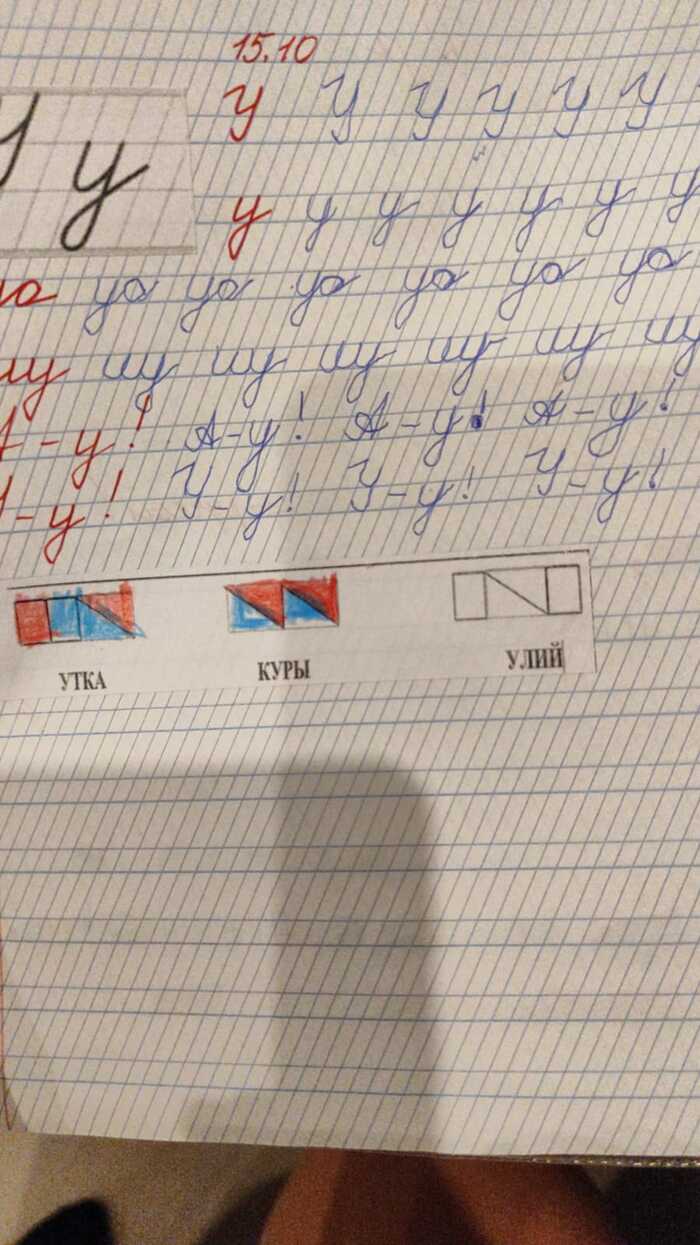 15.10
У У У У У У У
у у у у у у у у
уа уа уа уа уа уа уа
иу иу иу иу иу иу иу
А-у! А-у! А-у! А-у!
У-у! У-у! У-у! У-у!
УТКА КУРЫ УЛИЙ